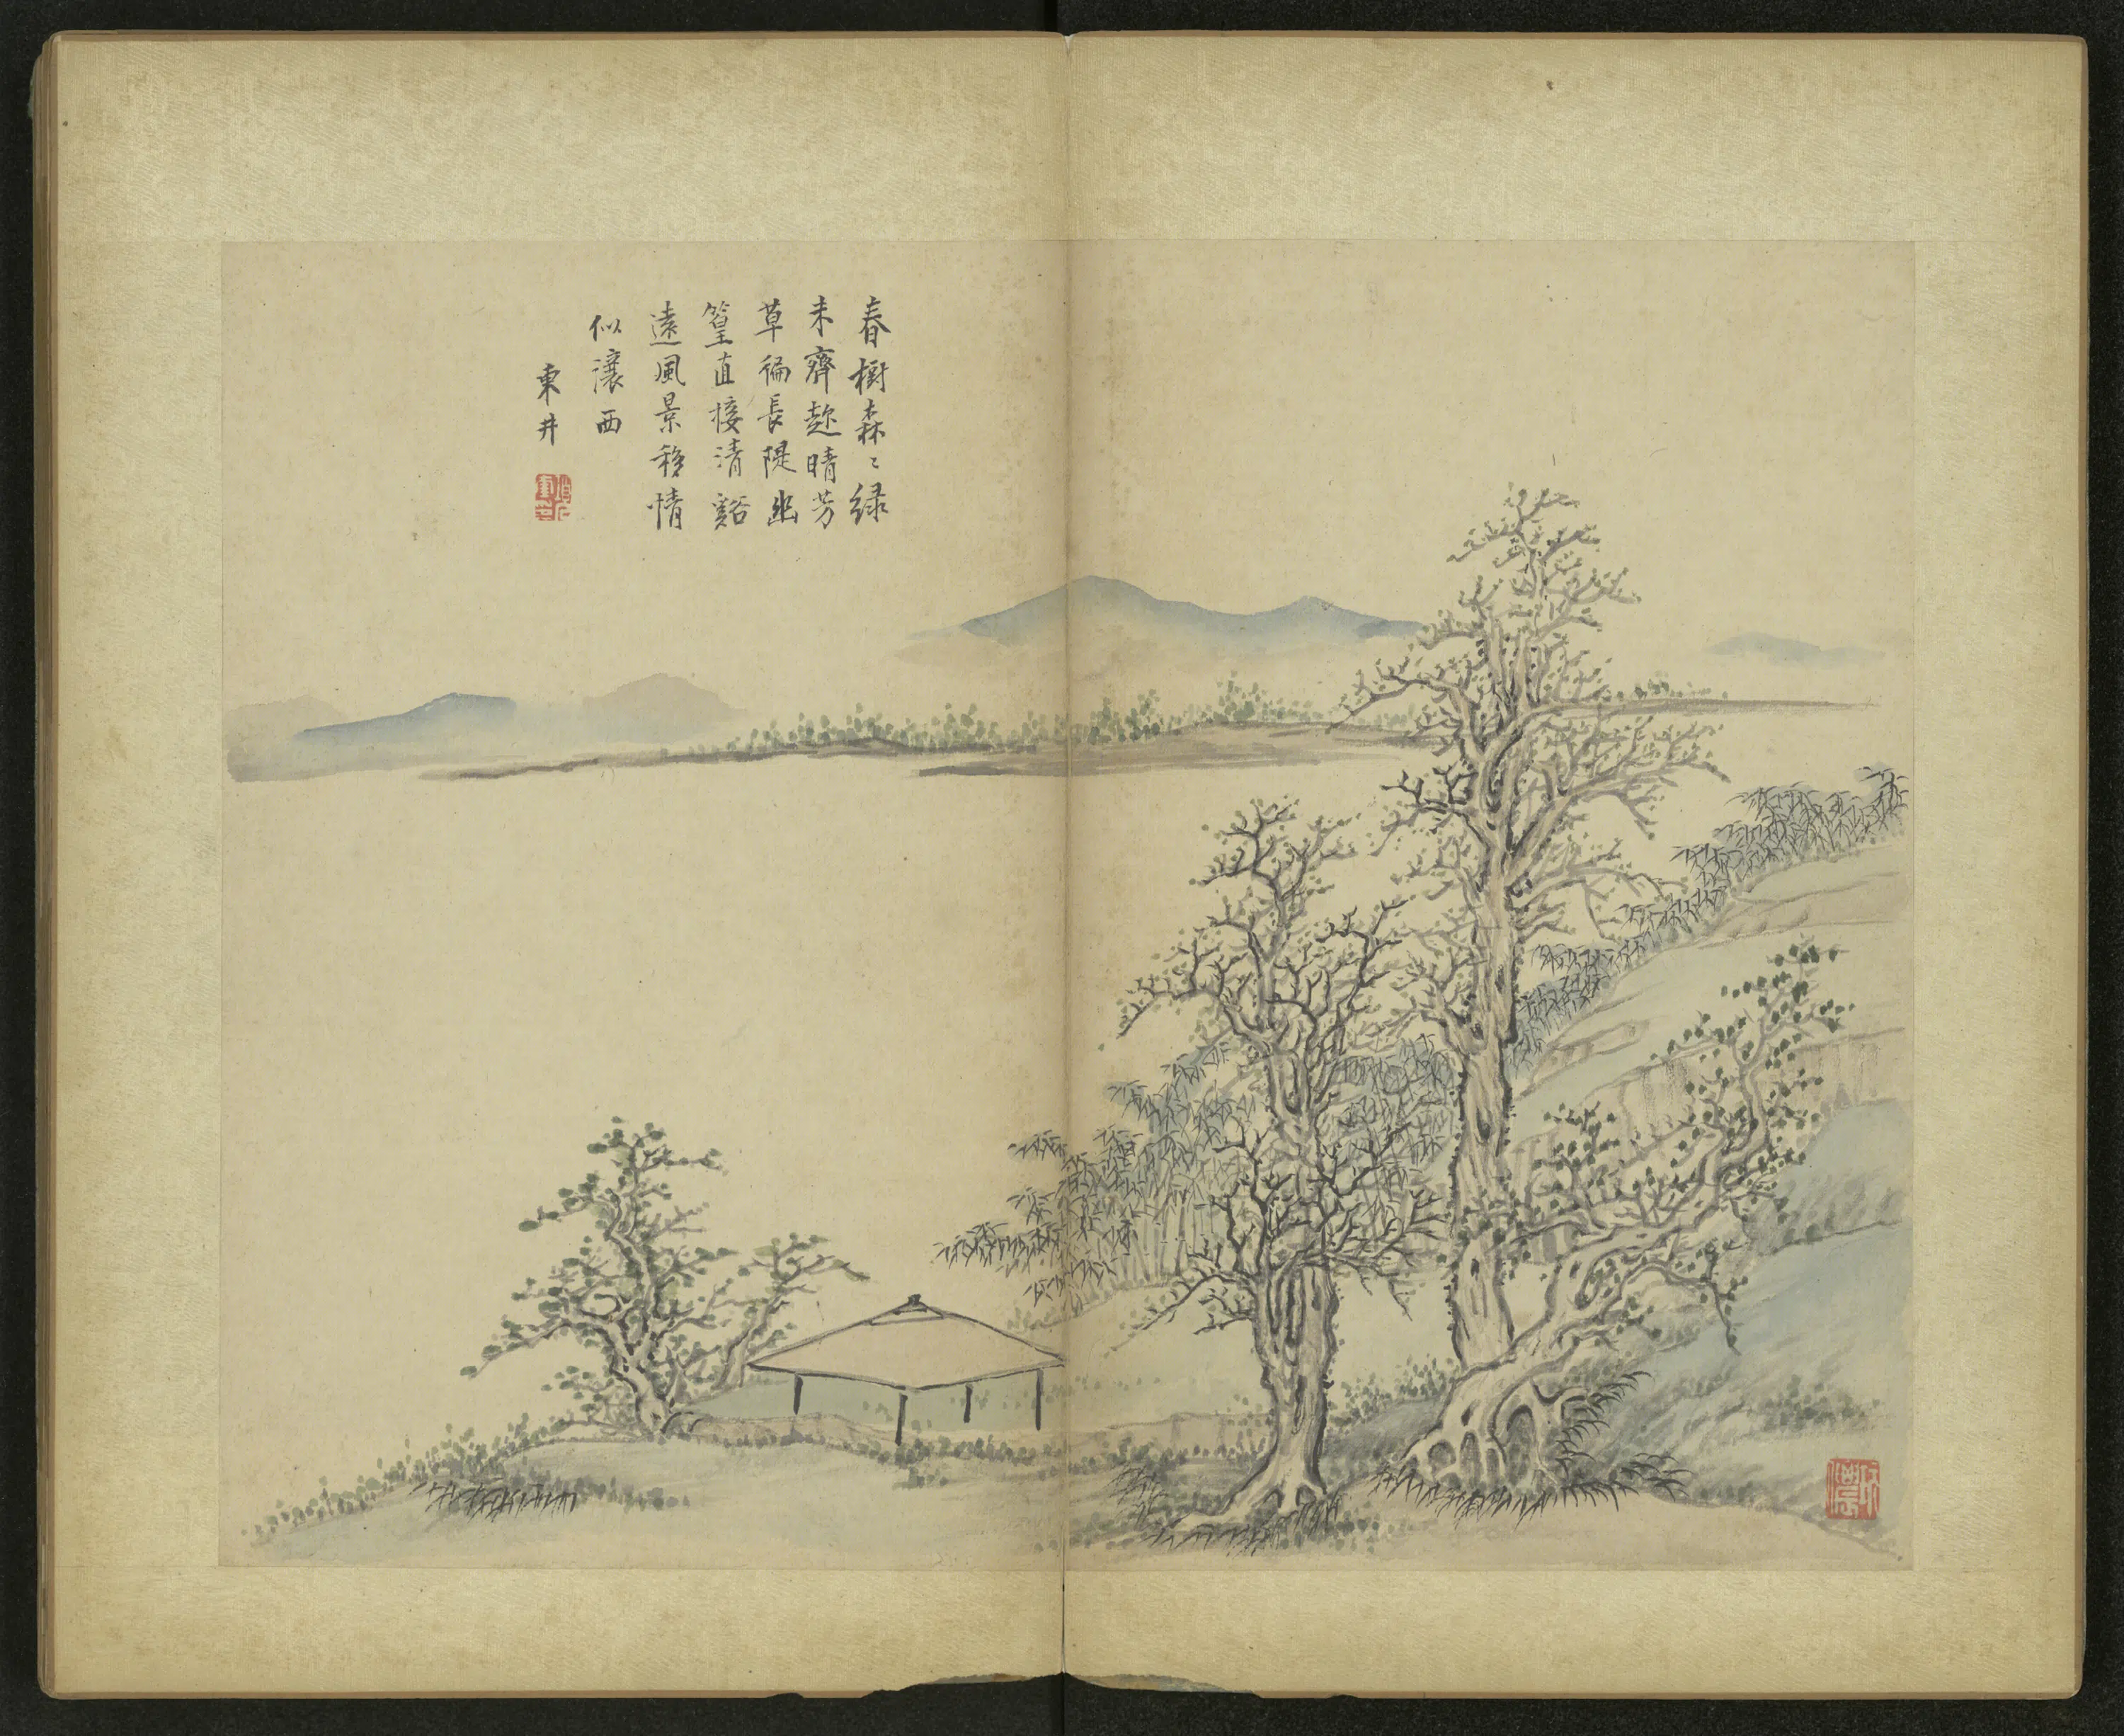 春樹森〻緑
未齊趂晴芳
草徧長隄幽
篁直接清谿
遠風景移情
似瀼西
東井